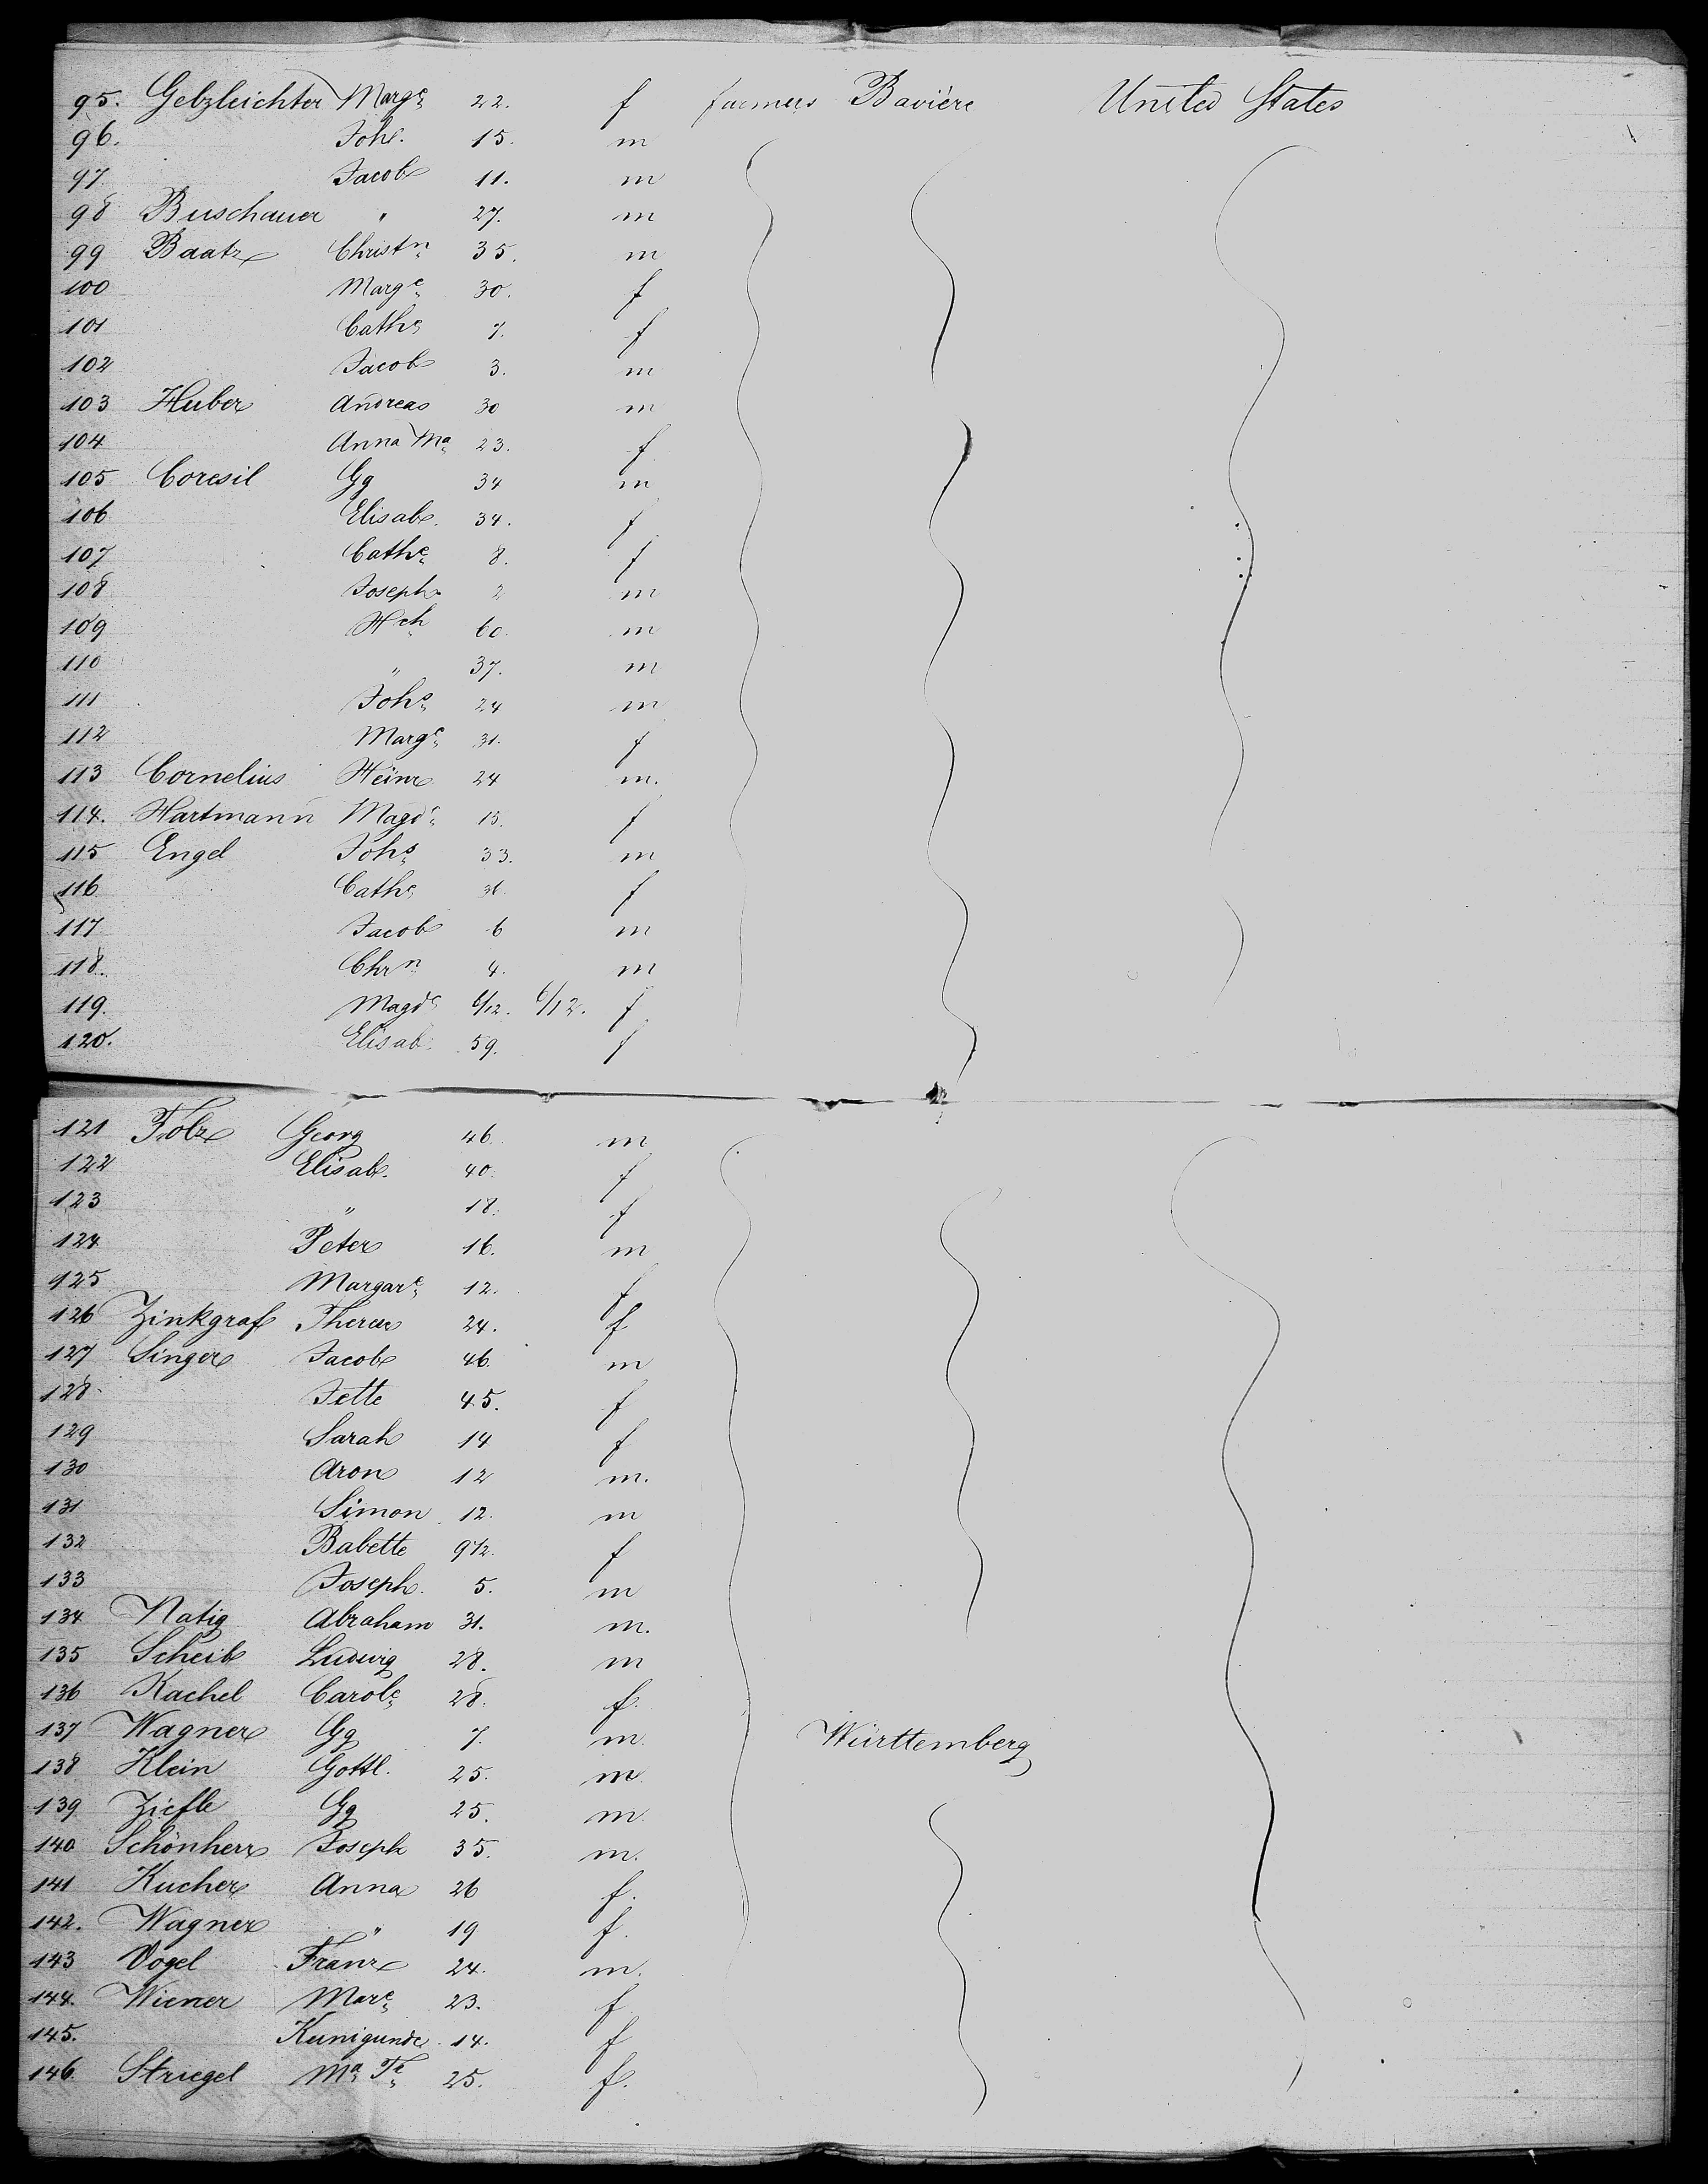 95. Gebzleichter Marge 22. f farmers Bavière United States
96. Johe. 15. m
97. Jacob 11. m
98 Buschauer " 27. m
99 Baatz Christn 35. m
100 Marge 30. f
101 Cathe 7. f
102 Jacob 3. m
103 Huber Andreas 30 m
104 Anna Ma 23. f
105 Coresil Gg 34 m
106 Elisab. 34. f
107 Cathe 8. f
108 Joseph 2 m
109 Hch 60. m
110 " 37. m
111 Johs 24 m
112 Marge 31. f
113 Cornelius Heinr 24 m.
114. Hartmann Magde 15. f
115 Engel Johs 33. m
116 Cathe 31. f
117 Jacob 6 m
118. Chrn 4. m
119. Magde 6/12. 6/12. f
120. Elisab. 59. f
121 Folz Georg 46. m
122 Elisab. 40. f
123 " 18. f
124 Peter 16. m
125 Margare 12. f
126 Zinkgraf 24. f
127 Singer Jacob 46. m
128. Jette 45. f
129 Sarah 14 f
130 Aron 12 m.
131 Simon 12. m
132 Babette f
133 Joseph. 5. m
134 Natig Abraham 31. m.
135 Scheib Ludwig 28. m
136 Kachel Carole 28. f.
137 Wagner Gg 7. m. Württemberg
138 Klein Gottl. 25. m.
139 Ziefle Gg 25. m.
140 Schönherr Joseph 35. m.
141 Kucher Anna 26 f.
142. Wagner " 19 f.
143 Vogel Franz 24. m.
144. Wiener Mare 23. f
145. Kunigunde. 14. f
146. Striegel Ma Te 25. f.